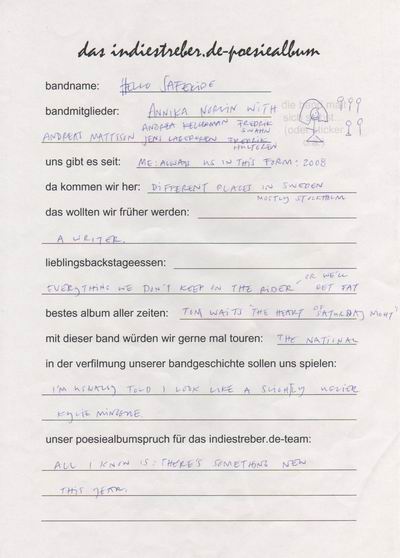 das indiestreber.de-poesiealbum
bandname: HELLO SAFERIDE
bandmitglieder: ANNIKA NORLIN WITH
ANDREA KELLERMAN FREDRIK
ANDREAS MATTSSON JENS LAGERGREN FREDRIK
HULTGREN
uns gibt es seit: ME: ALWAYS US IN THIS FORM: 2008
da kommen wir her: DIFFERENT PLACES IN SWEDEN
MOSTLY STOCKHOLM
das wollten wir früher werden:
A WRITER.
lieblingsbackstageessen:
EVERYTHING WE DON'T KEEP ON THE RIDER OR WE'LL
GET FAT
bestes album aller zeiten: TOM WAITS "THE HEART OF SATURDAY NIGHT"
mit dieser band würden wir gerne mal touren: THE NATIONAL
in der verfilmung unserer bandgeschichte sollen uns spielen:
I'M USUALLY TOLD I LOOK LIKE A SLIGHTLY UGLIER
KYLIE MINOGUE.
unser poesiealbumspruch für das indiestreber.de-team:
ALL I KNOW IS: THERE'S SOMETHING NEW
THIS YEAR.